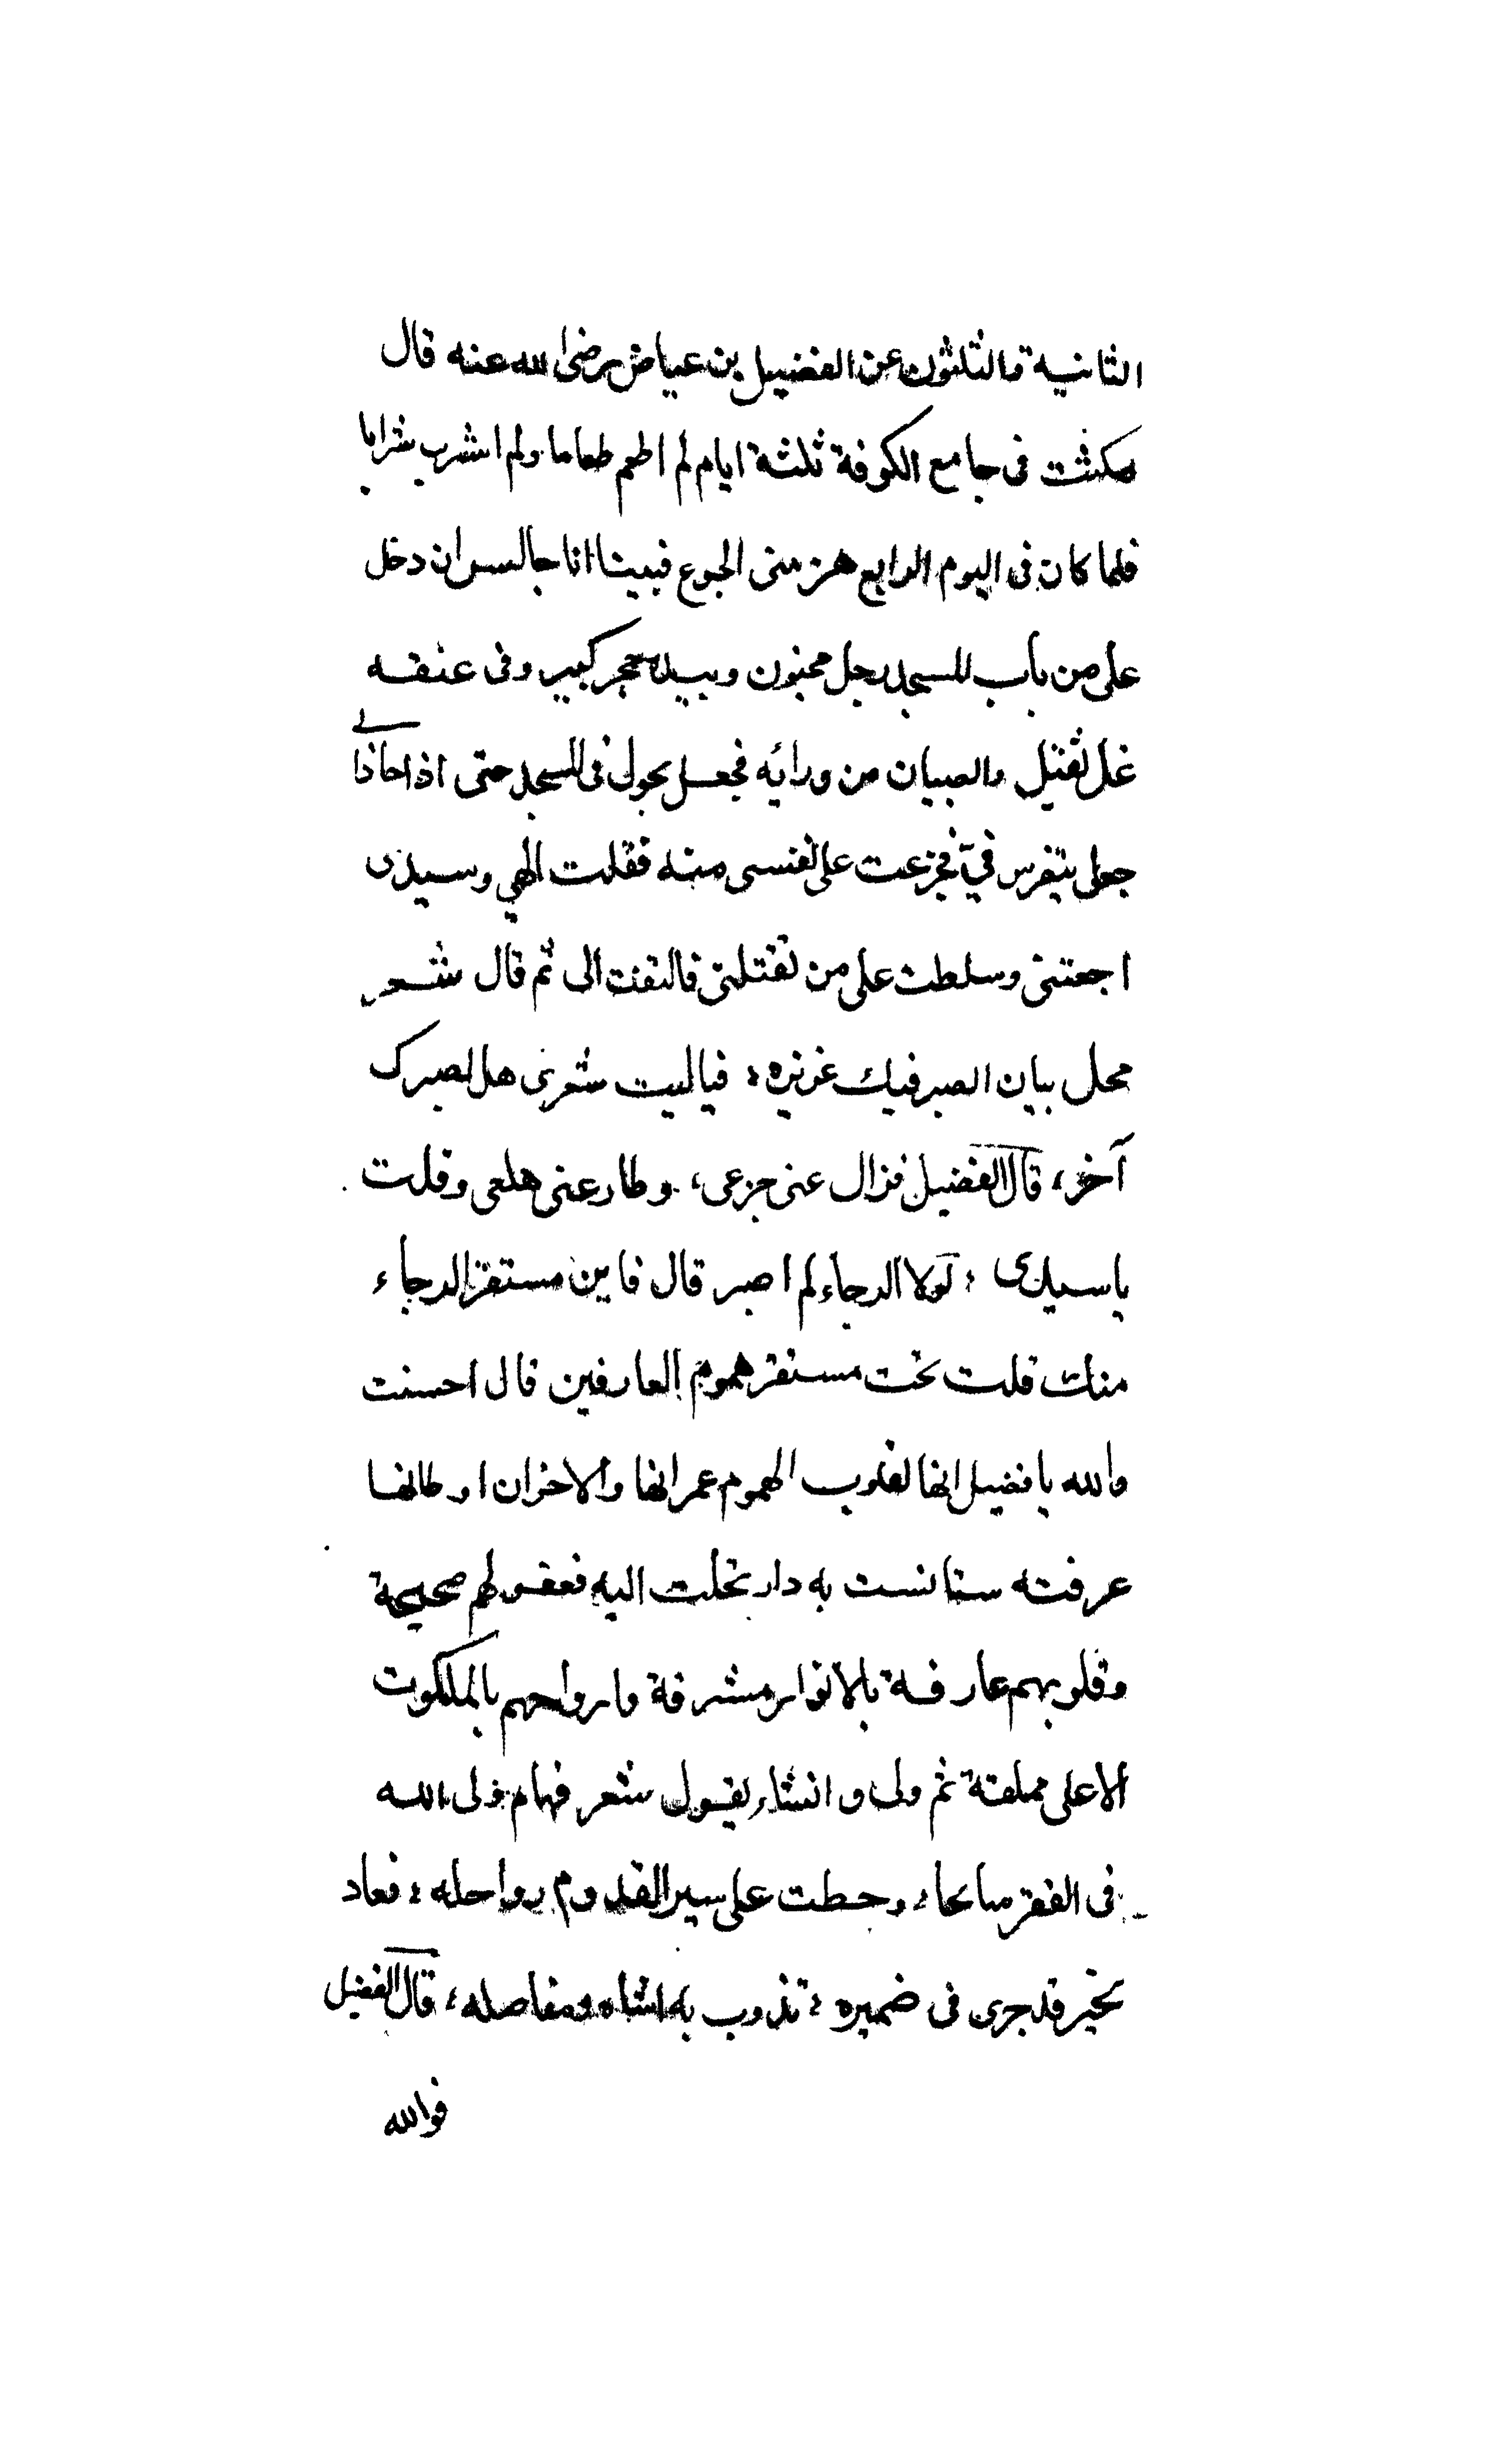 الثانية والثلثون عن الفضيل بن عياض رضى الله عنه قال
مكثت فى جامع الكوفة ثلثة ايام لم اطعم طعاما ولم اشرب شرابا
فلما كان فى اليوم الرابع هزمنى الجوع فبينا انا جالس ان دخل
على من باب المسجد رجل مجنون وبيده حجر كبير وفى عنقه
غل ثقيل والصبيان من ورائه فجعل يجول فى المسجد حتى اذا حاذانى
جعل يتفرس فيّ فجزعت على نفسى منه فقلت الهي وسيدى
اجعتنى وسلطت على من يقتلنى فالتفت الى ثم قال شعر
محل بيان الصبر فيك عزيزه ؛ فياليت شعرى هل لصبرك
آخر، قال الفضيل فزال عنى جزعى، وطار عنى هلعى وقلت
ياسيدى ؛ لولا الرجاء لم اصبر قال فاين مستقر الرجاء
منك قلت تحت مستقر هموم العارفين قال احسنت
والله يا فضيل انها لقلوب الهموم عمرانها والاحزان اوطانها
عرفته ستانست به دار تحلت اليه فعقولهم صحيحة
وقلوبهم عارفة بالانوار مشرفة وارواحهم بالملكوت
الاعلى معلقة ثم ولى وانشاء يقول شعر فهام ولى الله
فى الفقر سائحا، وحطت على سير القدوم رواحله ؛ فعاد
بخير قد جرى فى ضميره ؛ تذوب به امشاه ومفاصله، قال الفضيل
فوالله